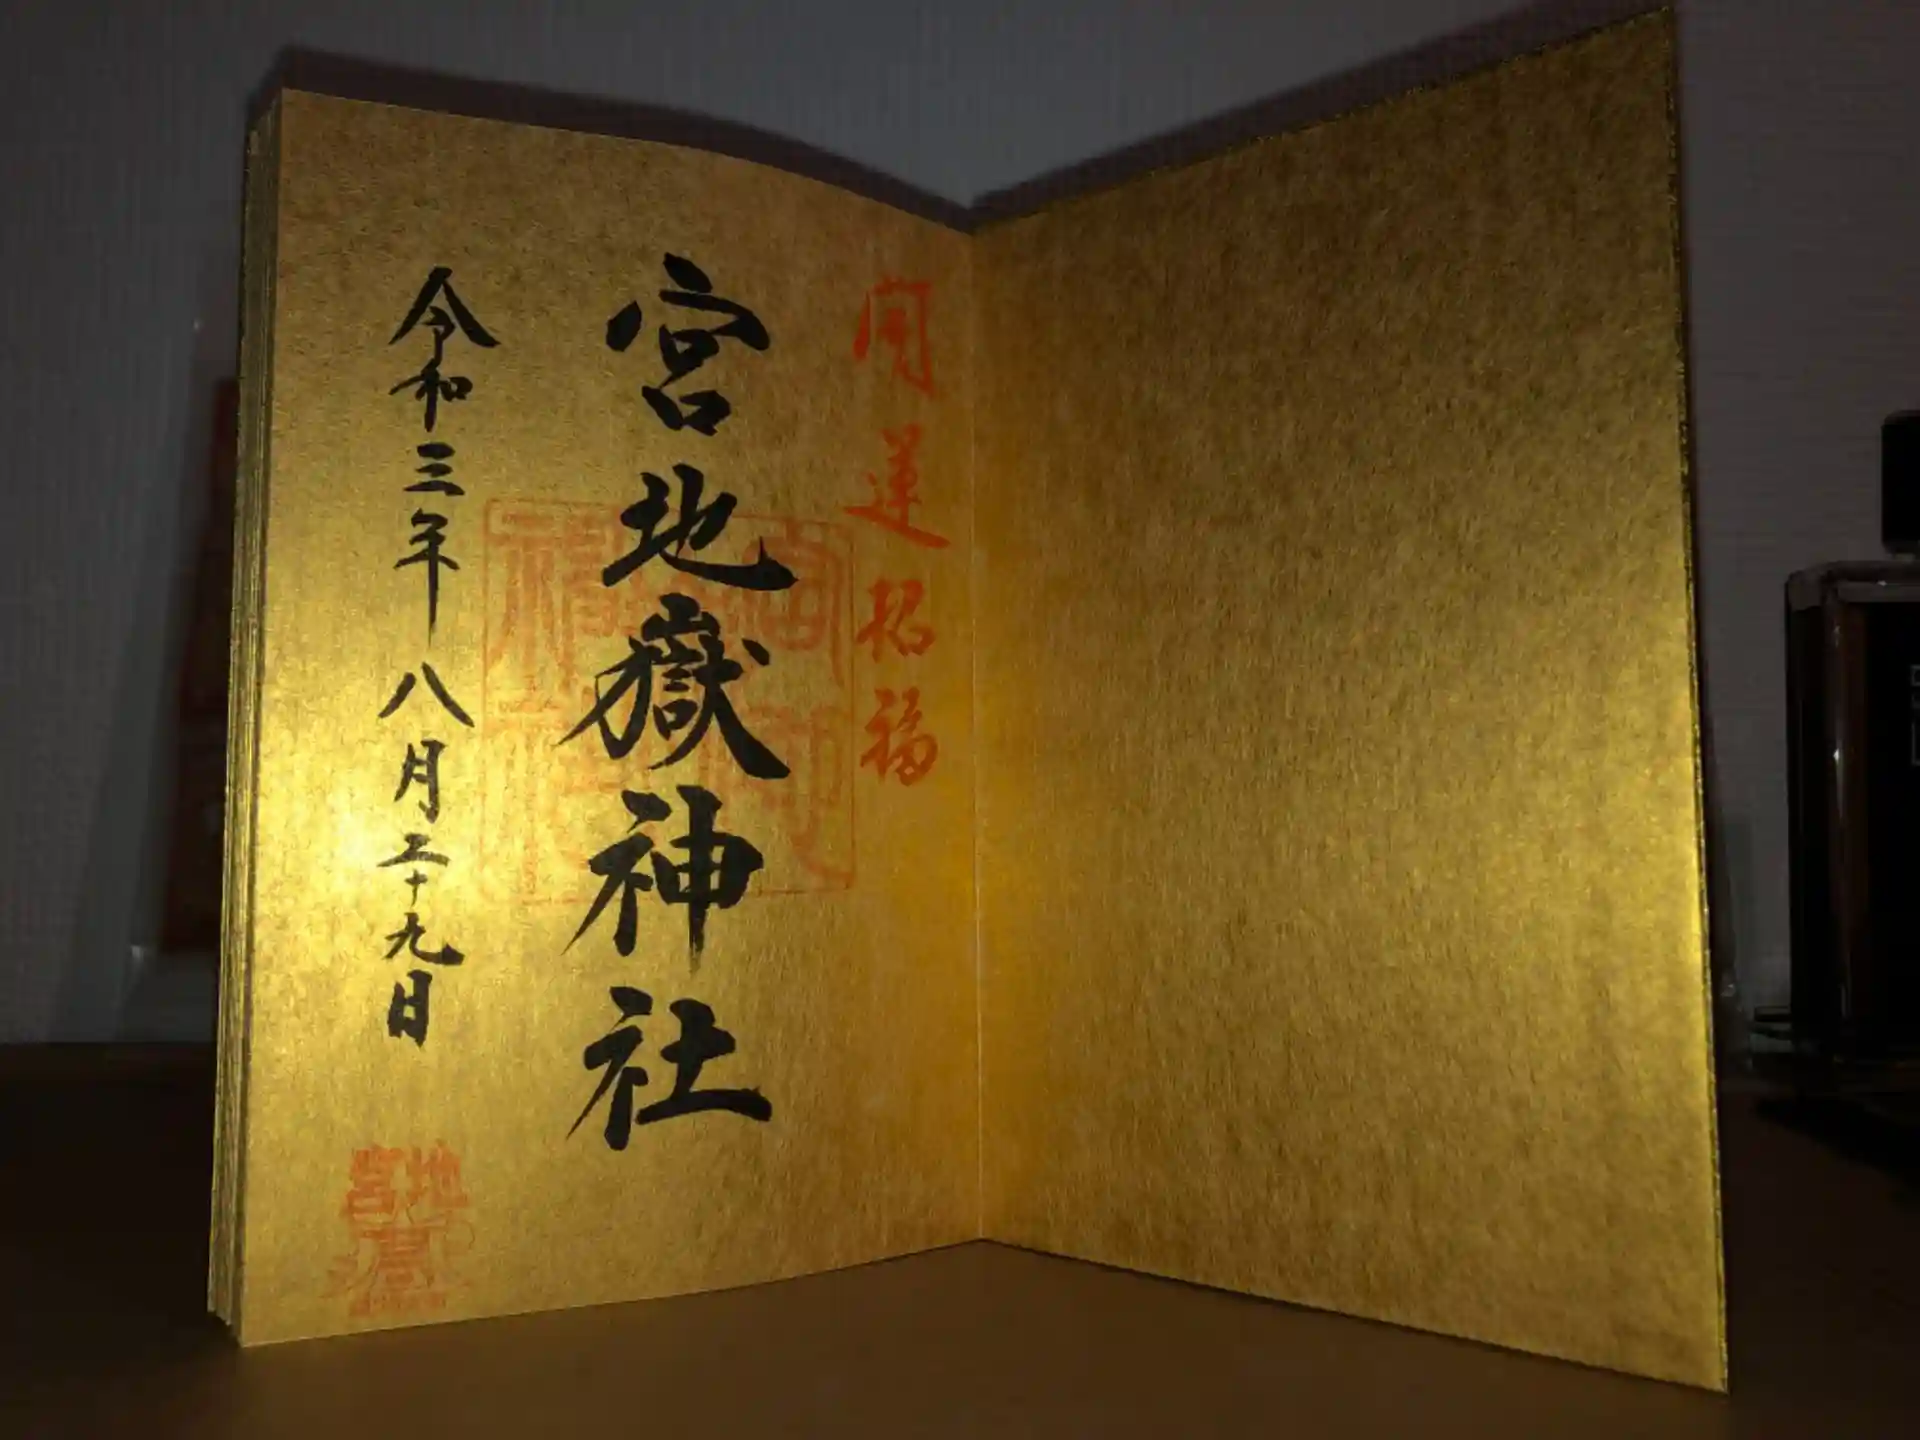 開運招福
宮地嶽神社
令和三年八月二十九日